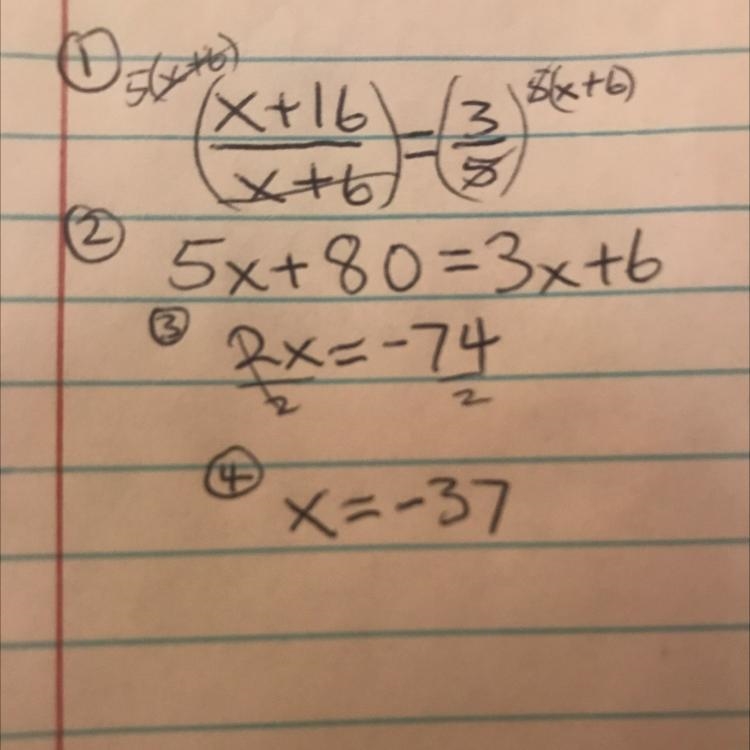 ① 5(x+6) (x+16/x+6) = (3/5) 5(x+6)
② 5x+80=3x+6
③ 2x/2=-74/2
④ x=-37